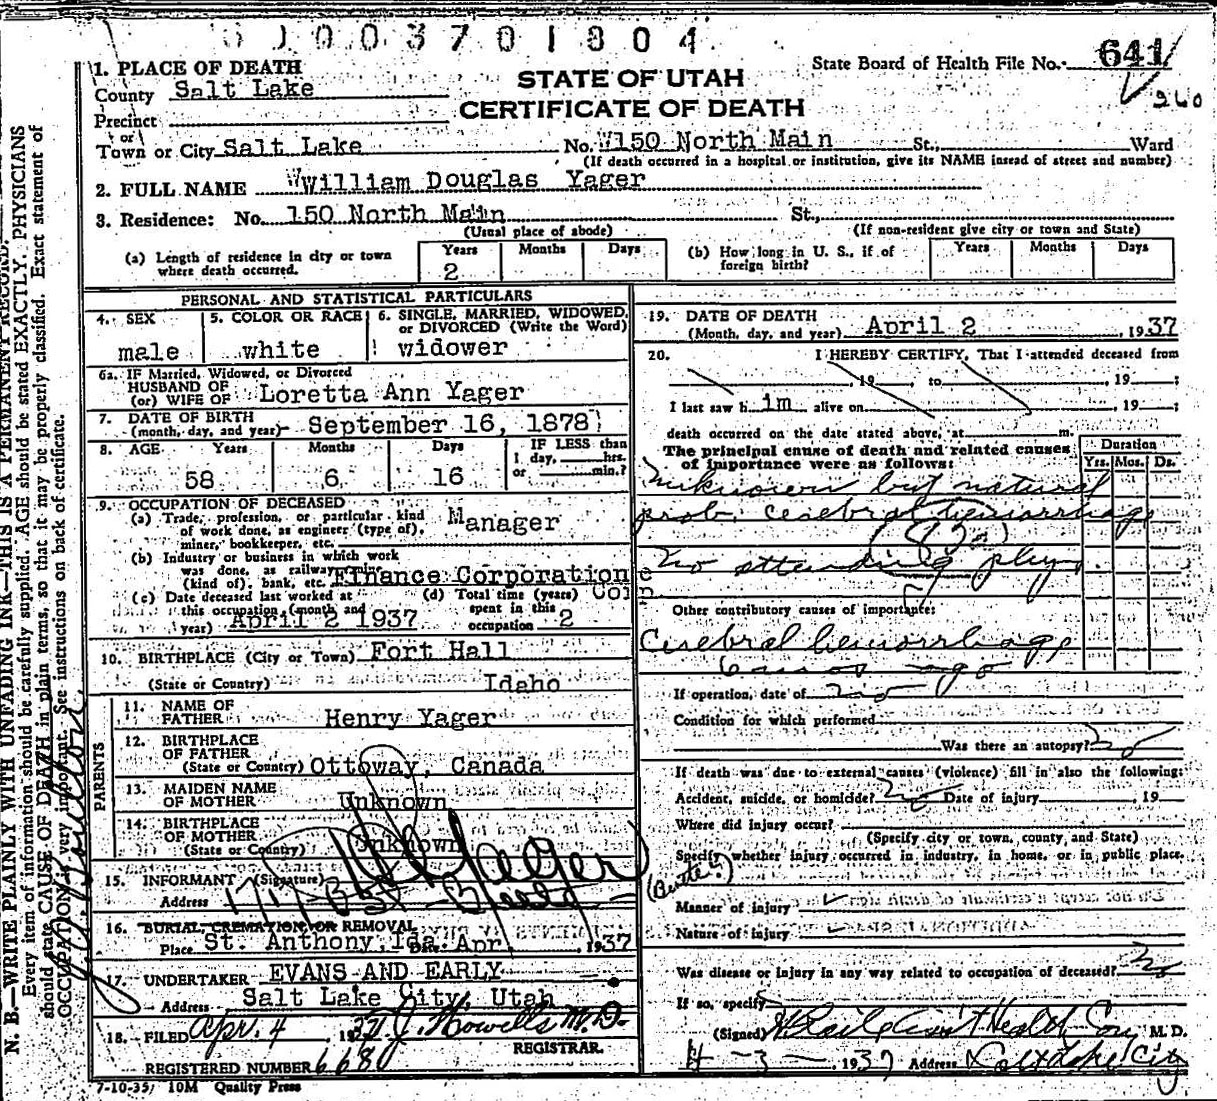 0003701804
State Board of Health File No. 641
260
STATE OF UTAH
CERTIFICATE OF DEATH
1. PLACE OF DEATH
County Salt Lake
Precinct
or
Town or City Salt Lake No. 150 North Main St., Ward
(If death occurred in a hospital or institution, give its NAME insead of street and number)
2. FULL NAME William Douglas Yager
3. Residence: No. 150 North Main St.,
(Usual place of abode) (If non-resident give city or town and State)
(a) Length of residence in city or town where death occurred. Years 2 Months Days
(b) How long in U. S., if of foreign birth? Years Months Days
PERSONAL AND STATISTICAL PARTICULARS
4. SEX male
5. COLOR OR RACE white
6. SINGLE, MARRIED, WIDOWED, or DIVORCED (Write the Word) widower
6a. IF Married, Widowed, or Divorced
HUSBAND OF
(or) WIFE OF Loretta Ann Yager
7. DATE OF BIRTH
(month, day, and year) September 16, 1878
8. AGE Years 58 Months 6 Days 16 IF LESS than 1 day, hrs. or min.?
9. OCCUPATION OF DECEASED
(a) Trade, profession, or particular kind of work done, as engineer (type of), miner, bookkeeper, etc. Manager
(b) Industry or business in which work was done, as railway, mine (kind of), bank, etc. Finance Corporation
(c) Date deceased last worked at this occupation (month and year) April 2 1937
(d) Total time (years) spent in this occupation 2
10. BIRTHPLACE (City or Town) Fort Hall
(State or Country) Idaho
PARENTS
11. NAME OF FATHER Henry Yager
12. BIRTHPLACE OF FATHER
(State or Country) Ottoway, Canada
13. MAIDEN NAME OF MOTHER Unknown
14. BIRTHPLACE OF MOTHER
(State or Country) Unknown
15. INFORMANT (Signature)
Address
16. BURIAL, CREMATION OR REMOVAL
Place St. Anthony, Ida. Date Apr. 1937
17. UNDERTAKER EVANS AND EARLY
Address Salt Lake City, Utah
18. FILED Apr. 4, 1937 Howells M.D.
REGISTRAR.
REGISTERED NUMBER 668
7-10-35 10M Quality Press
19. DATE OF DEATH
(Month, day, and year) April 2, 1937
20. I HEREBY CERTIFY, That I attended deceased from
, 19 , to , 19 ;
I last saw him alive on , 19 ;
death occurred on the date stated above, at m.
The principal cause of death and related causes of importance were as follows:
Duration
Yrs. Mos. Ds.
Unknown but natural
prob. cerebral hemorrhage
No attending phys.
Other contributory causes of importance:
Cerebral hemorrhage
6 mos ago
If operation, date of no
Condition for which performed
Was there an autopsy? no
If death was due to external causes (violence) fill in also the following:
Accident, suicide, or homicide? no Date of injury , 19
Where did injury occur?
(Specify city or town, county, and State)
Specify whether injury occurred in industry, in home, or in public place.
Manner of injury
Nature of injury
Was disease or injury in any way related to occupation of deceased? no
If so, specify
(Signed) M. D.
4-3-1937 Address Salt Lake City
N. B.—WRITE PLAINLY WITH UNFADING INK—THIS IS A PERMANENT RECORD.
Every item of information should be carefully supplied. AGE should be stated EXACTLY. PHYSICIANS
should state CAUSE OF DEATH in plain terms, so that it may be properly classified. Exact statement of
OCCUPATION is very important. See instructions on back of certificate.